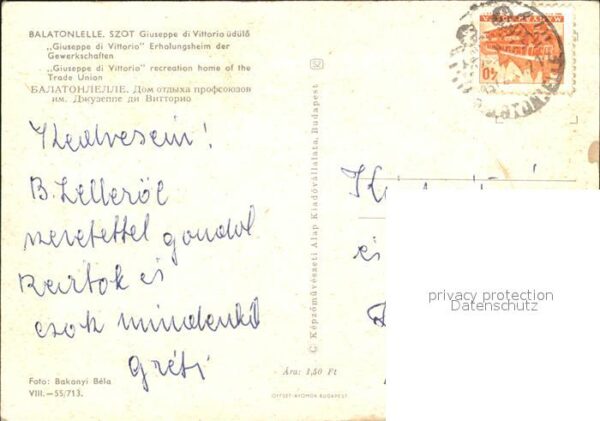 BALATONLELLE. SZOT Giuseppe di Vittorio üdülő
„Giuseppe di Vittorio" Erholungsheim der
Gewerkschaften
„Giuseppe di Vittorio" recreation home of the
Trade Union
БАЛАТОНЛЕЛЛЕ. Дом отдыха профсоюзов
им. Джузеппе ди Витторио
Kedveseim!
B. Lelléről
szeretettel gondol
Reátok és
csok mindenkit
Gréti
Foto: Bakonyi Béla
VIII.—55/713.
C Képzőművészeti Alap Kiadóvállalata, Budapest
Ára: 1,50 Ft
OFFSET-NYOMDA BUDAPEST
és
privacy protection
Datenschutz